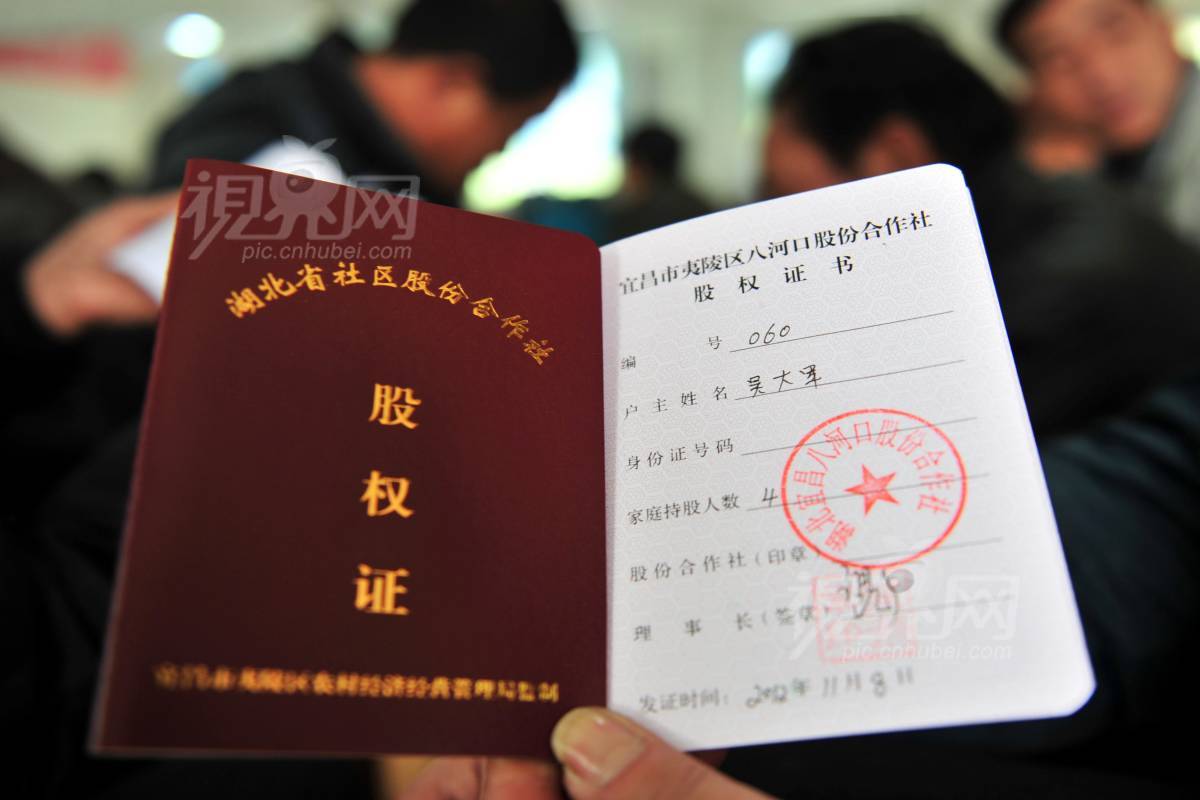 視界网
pic.cnhubei.com
湖北省社区股份合作社
股
权
证
宜昌市夷陵区农村经济经营管理局监制
宜昌市夷陵区八河口股份合作社
股权证书
编 号 060
户主姓名 吴大军
身份证号码
家庭持股人数 4
股份合作社(印章)
湖北宜昌八河口股份合作社
理事长(签章)
視界网
pic.cnhubei.com
发证时间: 2012年11月8日